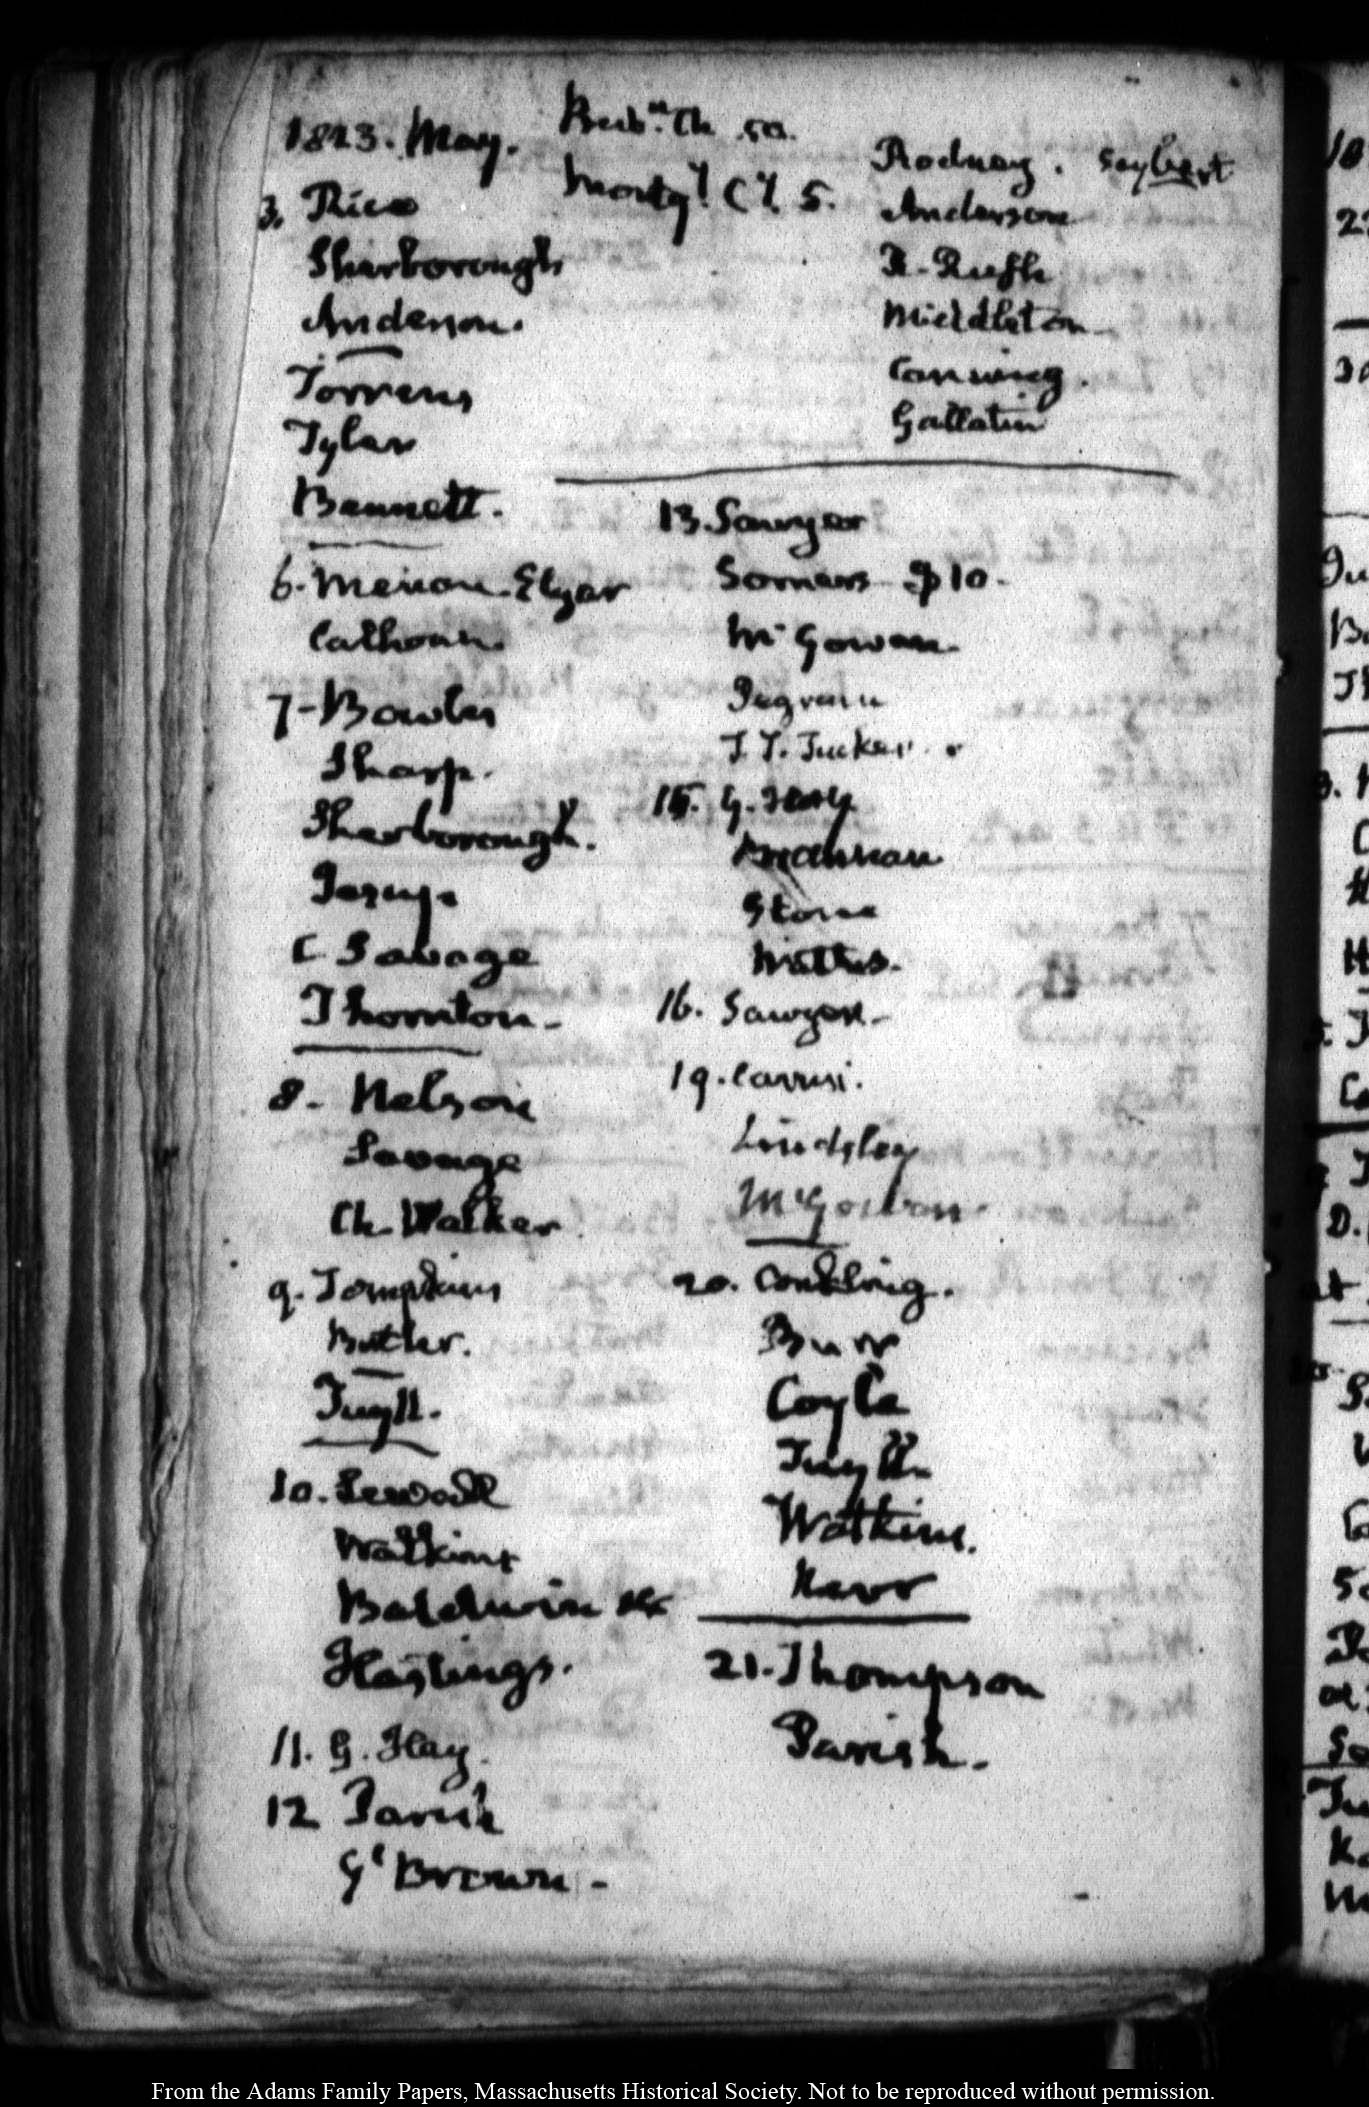 1823. May.
3. Rice
Sharborough
Anderson.
Torrens
Tyler
Bennett.
6. Merion. Elgar
Calhoun.
7- Bowles
Sharp.
Sharborough.
C Savage
Thornton-
8- Nelson
Savage
Ch. Walker
9. Tompkins
Butler.
Tuyll.
10. Sewall
Watkins
Baldwin
Hastings.
11. G. Hay.
12 Parish
Gl Brown -
50.
5.
Rodney. Seybert
Anderson
R. Rush
Middleton
Canning.
Gallatin
13. Sawyer
Somers $10.
McGowan.
Pegram
T. T. Tucker.
15. G. Hay
Brannan
Stone
16. Sawyer.
19. Carusi.
Lindsley
McGowan.
20. Conkling.
Burr
Coyle
Tuyll.
Watkins.
Kerr
21. Thompson
Parish.
From the Adams Family Papers, Massachusetts Historical Society. Not to be reproduced without permission.